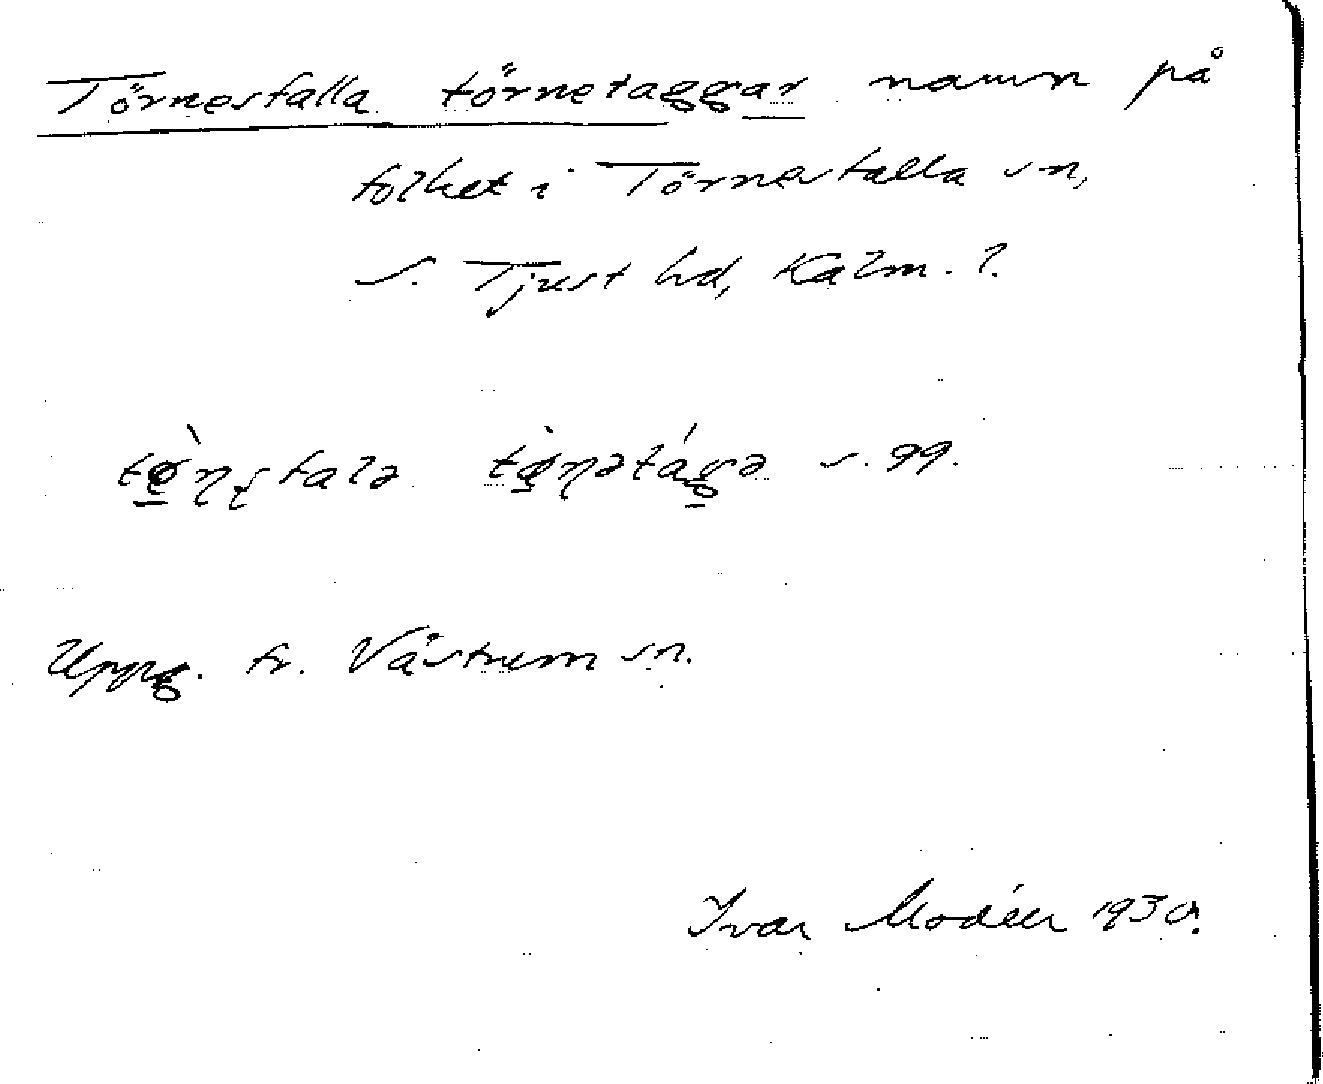 Törnesfalla törnetaggar namn på
folket i Törnesfalla sn,
S. Tjust hd, Kalm. l.
tø̀ṇʂfalə tø̀ṇətágə s. gg.
Uppg. fr. Västrum sn.
Ivar Modéer 1930.